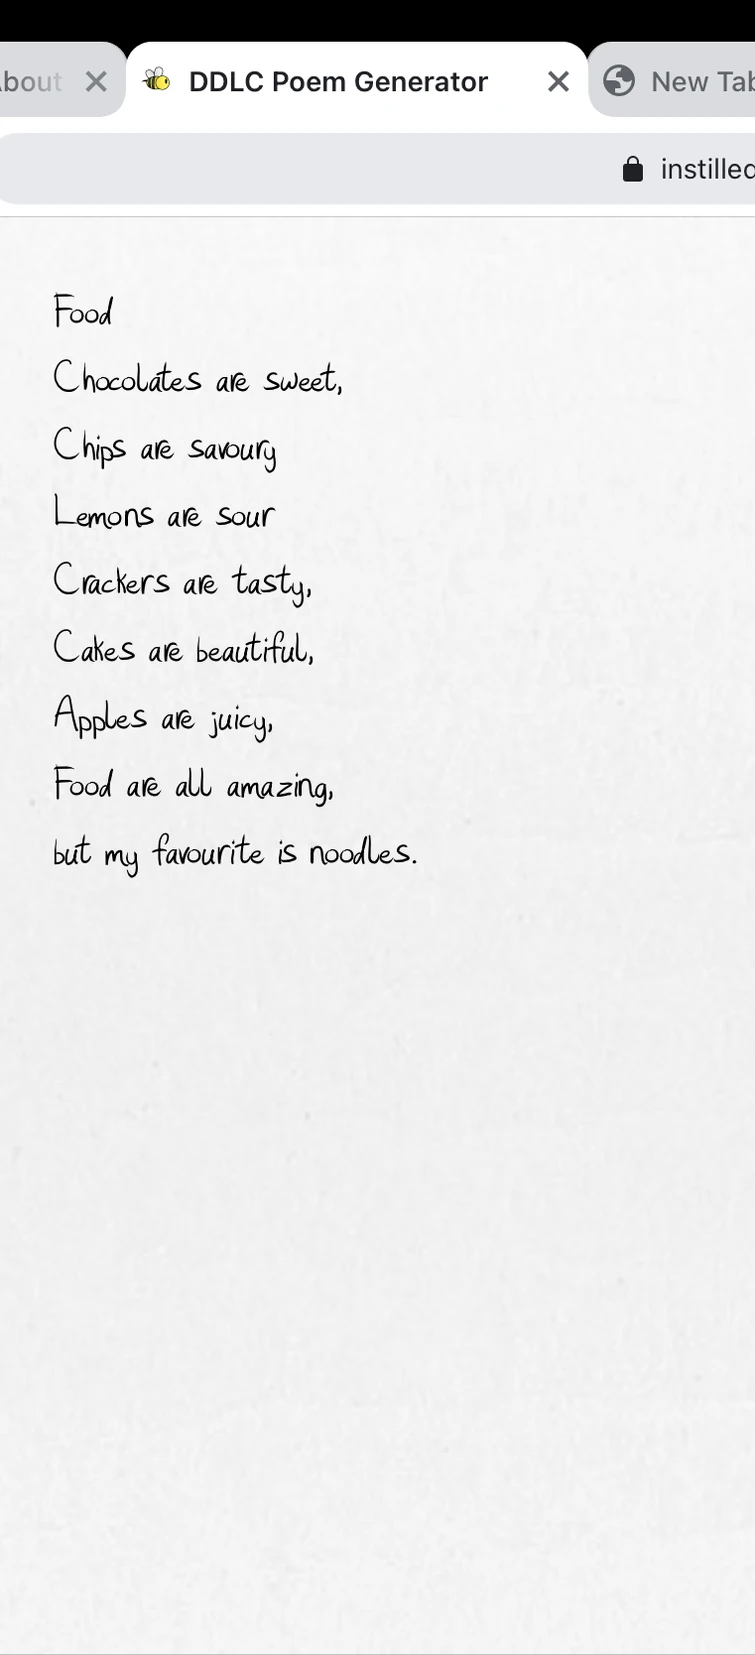 About
DDLC Poem Generator
New Tab
instilled
Food
Chocolates are sweet,
Chips are savoury
Lemons are sour
Crackers are tasty,
Cakes are beautiful,
Apples are juicy,
Food are all amazing,
but my favourite is noodles.